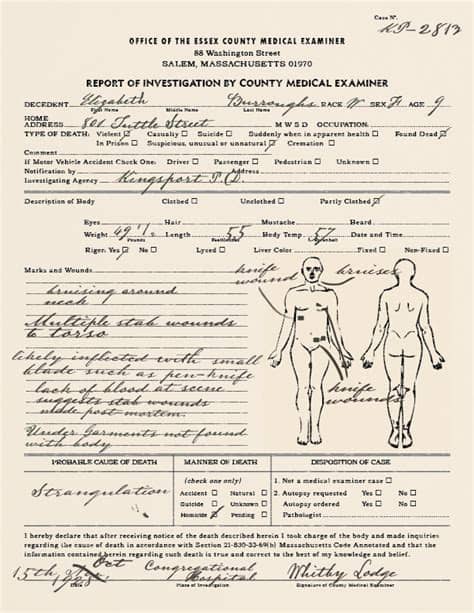 Case Nº.
KP-2812
OFFICE OF THE ESSEX COUNTY MEDICAL EXAMINER
88 Washington Street
SALEM, MASSACHUSETTS 01970
REPORT OF INVESTIGATION BY COUNTY MEDICAL EXAMINER
DECEDENT Elizabeth Burroughs RACE W SEX F AGE 9
First Name Middle Name Last Name
HOME
ADDRESS 801 Tuttle Street M W S D OCCUPATION:
TYPE OF DEATH: Violent Casualty Suicide Suddenly when in apparent health Found Dead
In Prison Suspicious, unusual or unnatural Cremation
Comment
If Motor Vehicle Accident Check One: Driver Passenger Pedestrian Unknown
Notification by Address
Investigating Agency Kingsport P.D.
Description of Body Clothed Unclothed Partly Clothed
Eyes Hair Mustache Beard
Weight Pounds Length 55 Body Temp. 57 Date and Time
Rigor: Yes No Lysed Liver Color Fixed Non-Fixed
Marks and Wounds
knife wound
bruises
bruising around
neck
Multiple stab wounds
to torso
likely inflicted with small
blade such as pen-knife
knife
wounds
lack of blood at scene
suggests stab wounds
made post mortem.
Under Garments not found
with body
PROBABLE CAUSE OF DEATH MANNER OF DEATH DISPOSITION OF CASE
Strangulation
(check one only)
Accident Natural
Suicide Unknown
Homicide Pending
1. Not a medical examiner case
2. Autopsy requested Yes No
Autopsy ordered Yes No
Pathologist
I hereby declare that after receiving notice of the death described herein I took charge of the body and made inquiries
regarding the cause of death in accordance with Section 21-830-33-69(b) Massachusetts Code Annotated and that the
information contained herein regarding such death is true and correct to the best of my knowledge and belief.
15th Oct Congregational Hospital Whitby Lodge
Date Place of Investigation Signature of County Medical Examiner